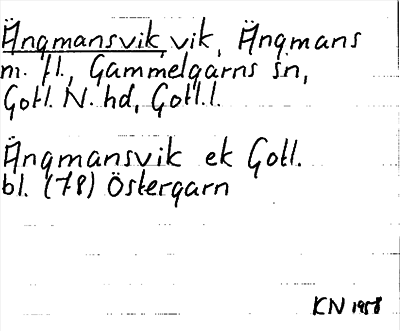 Ängmansvik, vik, Ängmans
m. fl., Gammelgarns sn,
Gotl. N. hd, Gotl. l.
Ängmansvik ek Gotl.
bl. (78) Östergarn
KN 1958